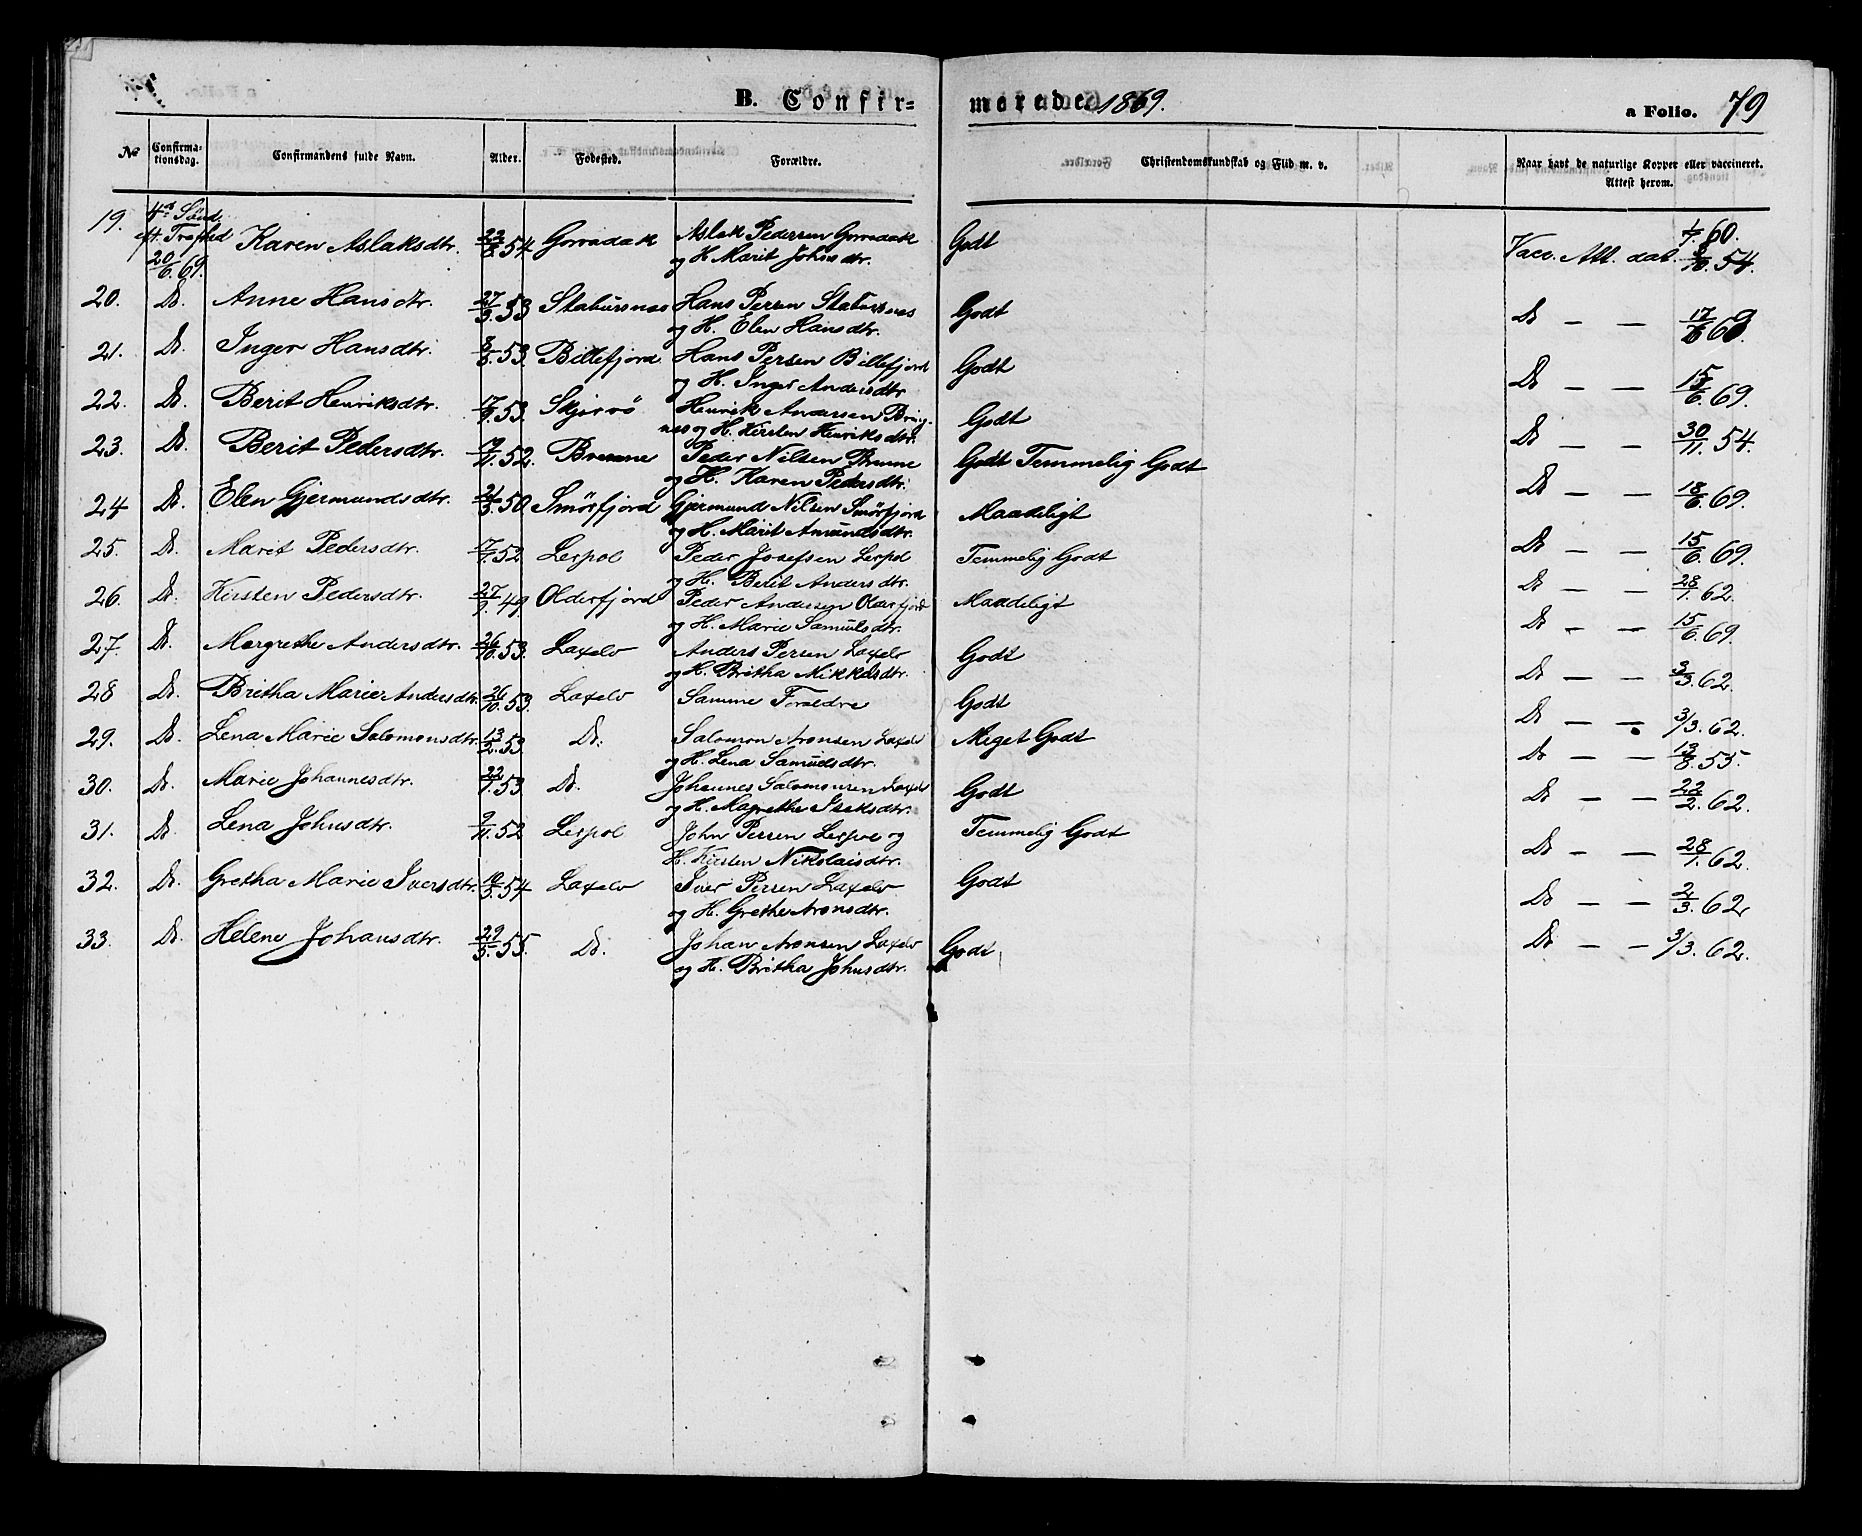 B. Confir=
merede. 1869.
a Folio. 79
No Confirma-tionsdag. Confirmandens fulde Navn. Alder. Fødested. Forældre. Christendomskundskab og Flid m. v. Naar havt de naturlige Kopper eller vaccineret. Attest herom.
19. 4de Sönd. eft. Trefhed 20/6. 69. Karen Aslaksdtr. 54 Gorradak Aslak Pedersen Gorradak Godt Vacc. Att. dat.
og H. Marit Johnsdtr.
20. Do. Anne Hansdtr. 27/3. 53 Stabursnæs Hans Persen Stabursnæs Godt Do — —
og H. Elen Hansdtr.
21. Do. Inger Hansdtr. 53. Billefjord Hans Persen Billefjord Godt Do — — 15/6. 69.
og H. Inger Andersdtr
22. Do. Berit Henriksdtr. 53. Skjervö Henrik Andersen Bring- Godt Do — — 30/11. 54.
næs og H. Kirsten Henriksdtr.
23. Do. Berit Pedersdtr. 52. Brenne Peder Nilsen Brenne Godt Temmelig Godt Do — — 18/6. 69.
og H. Karen Pedersdtr.
24 Do. Elen Gjermundsdtr. 50 Smörfjord Gjermund Nilsen Smörfjord Maadeligt Do — — 15/6. 69.
og H. Marit Amundsdtr.
25. Do. Marit Pedersdtr. 52 Leipol Peder Josefsen Leipol Temmelig Godt Do — — 28/1. 62.
og H. Berit Andersdtr.
26. Do. Kirsten Pedersdtr. 49 Olderfjord Peder Andersen Olderfjord Maadeligt Do — — 15/6. 69.
og H. Marie Samuelsdtr.
27. Do. Margrethe Andersdtr. 26/10. 53. Laxelv Anders Persen Laxelv Godt Do — — 3/3. 62.
og H. Britha Mikkelsdtr.
28 Do. Britha Marie Andersdtr. 26/10. 53. Laxelv Samme Forældre Godt Do — — 3/3. 62.
29. Do. Lena Marie Salomonsdtr. 13/2. 53 Do. Salomon Aronsen Laxelv Meget Godt Do — — 13/8. 55.
og H. Lena Samuelsdtr.
30. Do. Marie Johannesdtr. 53 Do. Johannes Salomonsen Laxelv Godt Do — — 22/2. 62.
og H. Magrethe Isaksdtr.
31. Do. Lena Johnsdtr. 9/11. 52 Leipol John Persen Leipol og Temmelig Godt Do — — 28/1. 62
H. Kirsten Nikolaisdtr.
32. Do. Gretha Marie Iversdtr. 54 Laxelv Iver Persen Laxelv Godt Do — — 2/3. 62
og H. Grethe Aronsdtr.
33. Do. Helene Johansdtr. 29/5. 55. Do. Johan Aronsen Laxelv Godt Do — — 3/3. 62.
og H. Britha Johnsdtr.